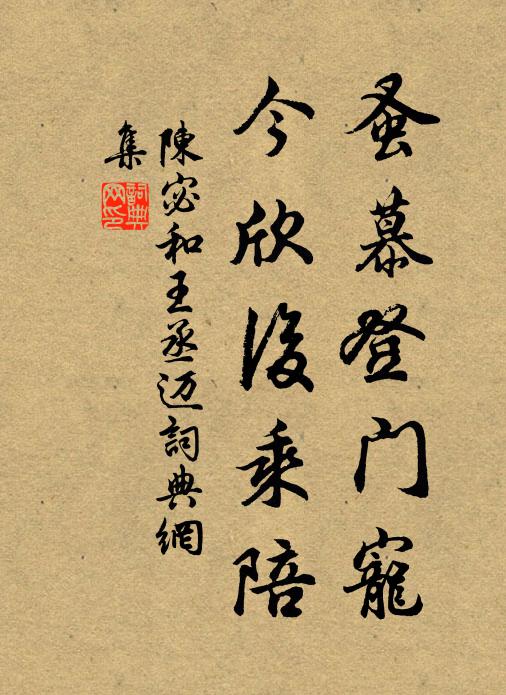 蚤慕登門寵
今欣後乘陪
陳宓和王丞迈詞典網
集
詞典
网印